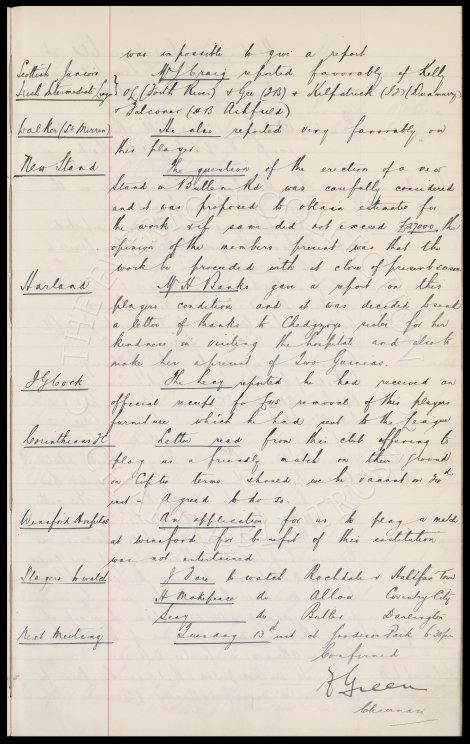 was impossible to give a report
Scottish Juniors
Irish Intermediate Lge
Mr J Craig reported favorably of Kelly
OL (Forth River) & Gee (FB) & Kilpatrick (IF) (Dunmurry)
& Falconer (HB Ashfield)
Walker (St Mirren)
He also reported very favorably on
this player.
New Stand
The question of the erection of a new
Stand in Bullens Rd was carefully considered
and it was proposed to obtain estimates for
the work & if same did not exceed £27000 the
opinion of the members present was that the
work be proceeded with at close of present season
Harland
Mr H Banks gave a report on this
players condition and it was decided to send
a letter of thanks to Chedgzoys sister for her
kindness in visiting the hospital and also to
make her a present of Two Guineas.
J G Cock
The Secy reported he had received an
official receipt for £45 removal of this players
furniture which he had sent to the League
Corinthians FC
Letter read from this club offering to
play us a friendly match on their ground
on Cuptie terms should we be vacant on 30th
inst - Agreed to do so.
Winsford Hospital
An application for us to play a match
at Winsford for benefit of this institution
was not entertained
Players to watch
to watch Rochdale v Halifax Town
H Makepeace do Allon Coventry City
Secy do Butler Darlington
Next Meeting
Tuesday 13th inst at Goodison Park 6.30pm
Confirmed
Green
Chairman